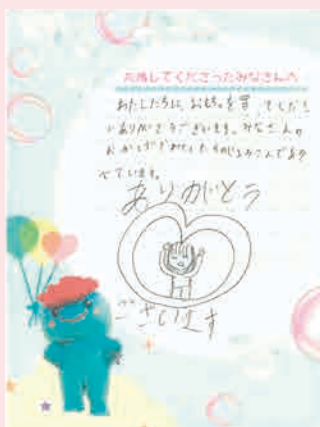 応援してくださったみなさんへ
わたしたちに、おもちゃを買ってくださ
いありがとうございます。みなさんの
おかげで
せています。
ありがとう
ございます